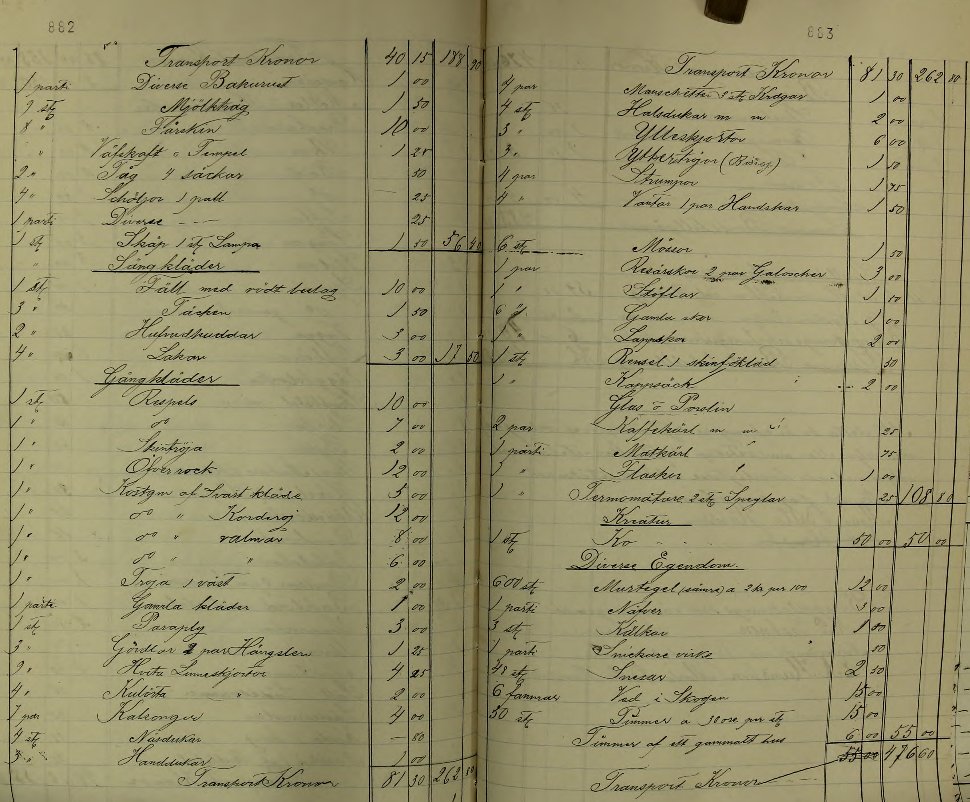 882
Transport Kronor 40 15 188 90
1 parti Diverse Bakurust 1 00
9 st Mjölktråg 1 50
8 " Fårskin 10 00
" Väfskaft o Tempel 1 25
2 " Tåg 4 säckar 50
4 " Schöljor 1 patt 25
1 parti Diverse 25
1 st Skåp 1 st Lampa 1 50 56 40
Sängkläder
1 st Fäll med rödt beslag 10 00
3 " Täcken 1 50
2 " Hufvudkuddar 3 00
4 " Lakan 3 00 17 50
Gångkläder
1 st Respels 10 00
1 " do 7 00
1 " Skintröja 2 00
1 " Öfverrock 12 00
1 " Kostym af Svart kläde 5 00
1 " do " Korderoj 12 00
1 " do " valmar 8 00
1 " do " " 6 00
1 " Tröja 1 väst 2 00
1 parti Gamla kläder 1 00
1 st Paraply 3 00
3 " Gördlar 2 par Hängslen 1 25
9 " Hvita Linneskjortor 4 25
4 " Kulörta " 2 00
7 par Kalsonger 4 00
4 st Näsdukar 80
3 " Handdukar 1 00
Transport Kronor 81 30 262 80
883
Transport Kronor 81 30 262 80
4 par Manschetter 3 st Kragar 1 00
4 st Halsdukar m m 2 00
3 " Ylleskjortor 6 00
3 " Yttertröjor 1 50
4 par Strumpor 1 75
4 " Vantar 1 par Handskar 1 50
6 st Mössor 1 50
1 par Resårskor 2 par Galoscher 3 00
1 " Stöflar 1 50
6 " Gamla skor 1 00
" Lappskor 2 00
1 st Rensel 1 skinförkläd 50
1 " Kappsäck 2 00
Glas o Porslin
2 par Kaffekärl m m 25
1 parti Matkärl 75
" Flaskor 1 00
1 " Termomätare 2 st Speglar 25 108 80
Kreatur
1 st Ko 50 00 50 00
Diverse Egendom
600 st Murtegel (sämre) a 2 kr per 100 12 00
1 parti Nätver 3 00
3 st Kälkar 1 50
1 parti Snickare virke 50
48 st Snesar 2 50
6 famnar Ved i Skogen 15 00
50 st Timmer a 30 öre per st 15 00
Timmer af ett gammalt hus 6 00 55 00
Transport Kronor 55 00 476 60